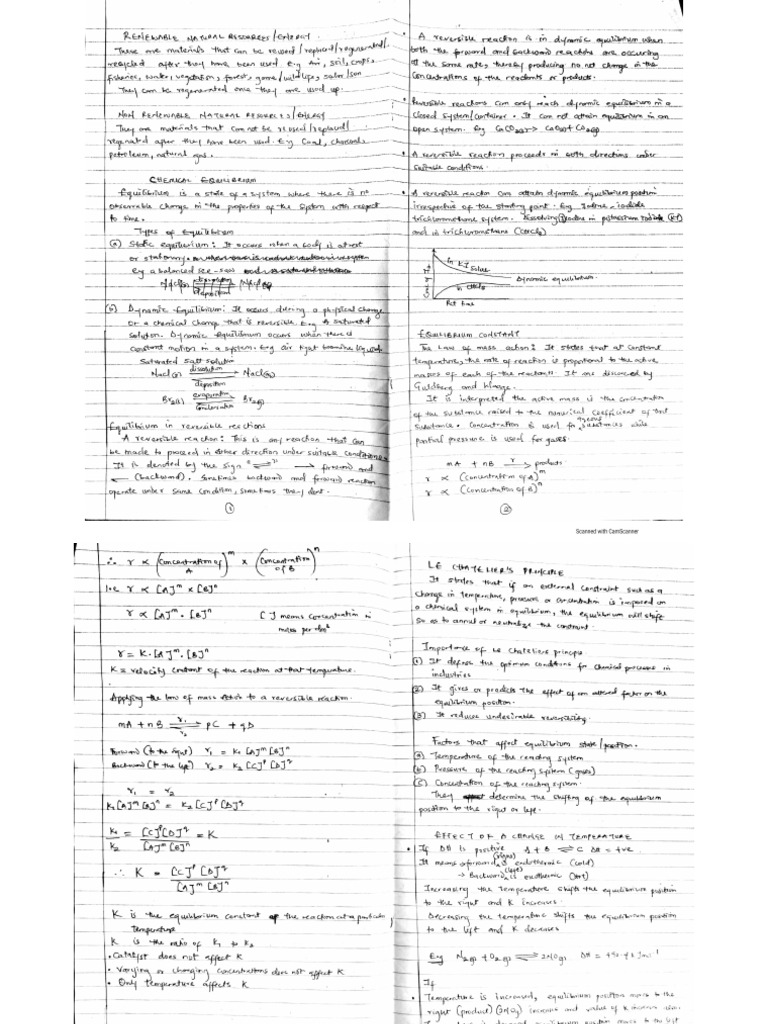 RENEWABLE NATURAL RESOURCES/ENERGY
These are materials that can be reused/replaced/regenerated/
recycled after they have been used. Eg Air, soil, crops,
fisheries, water, vegetation, forest, game/wildlife, solar/sun
They can be regenerated once they are used up.
NON RENEWABLE NATURAL RESOURCES/ENERGY
They are materials that cannot be reused/replaced/
regenated after they have been used. Eg Coal, charcoal,
petroleum, natural gas.
CHEMICAL EQUILIBRIUM
Equilibrium is a state of a system where there is no
observable change in the properties of the system with respect
to time.
Types of Equilibrium
(a) Static equilibrium: It occurs when a body is at rest
or stationary.
Eg a balanced see-saw
(b) Dynamic Equilibrium: It occurs during a physical change
or a chemical change that is reversible. Eg A saturated
solution. Dynamic equilibrium occurs when there is
constant motion in a system. Eg air bromine liquid
Saturated salt solution
NaCl(s) dissolution NaCl(aq)
deposition
Br2(l) evaporation Br2(g)
condensation
Equilibrium in reversible reactions
A reversible reaction: This is any reaction that can
be made to proceed in either direction under suitable conditions.
It is denoted by the sign "⇌" → forward and
← (backward). Sometimes backward and forward reaction
operate under same condition, sometimes they dont.
①
• A reversible reaction is in dynamic equilibrium when
both the forward and backward reactions are occuring
at the same rate, thereby producing no net change in the
concentrations of the reactants or products.
• Reversible reactions can only reach dynamic equilibrium in a
closed system/container. It can not attain equilibrium in an
open system. Eg CaCO3(s) → CaO(s) + CO2(g)
• A reversible reaction proceeds in both directions under
suitable conditions.
• A reversible reaction can attain dynamic equilibrium position
irrespective of the starting point. Eg Iodine, iodide
trichloromethane system. Dissolving Iodine in potassium Iodide (KI)
and in trichloromethane (CHCl3)
in KI soln
Dynamic equilibrium
in CHCl3
Rxt time
EQUILIBRIUM CONSTANT
The Law of mass action: It states that at constant
temperature, the rate of reaction is proportional to the active
masses of each of the reactants. It was discovered by
Guldberg and Waage.
It is interpreted the active mass is the concentration
of the substance raised to the numerical coefficient of that
substance. Concentration is used for aqueous substances while
partial pressure is used for gases.
mA + nB r→ products
r ∝ (concentration of A)^m
r ∝ (concentration of B)^n
②
Scanned with CamScanner
∴ r ∝ (Concentration of A)^m × (Concentration of B)^n
i.e r ∝ [A]^m × [B]^n
r ∝ [A]^m . [B]^n [ ] means concentration in
moles per dm³
r = K . [A]^m . [B]^n
K = velocity constant of the reaction at that temperature.
Applying the law of mass action to a reversible reaction.
mA + nB r1 ⇌ r2 pC + qD
Forward (to the right) r1 = k1 [A]^m [B]^n
Backward (to the left) r2 = k2 [C]^p [D]^q
r1 = r2
k1 [A]^m [B]^n = k2 [C]^p [D]^q
k1/k2 = [C]^p [D]^q / [A]^m [B]^n = K
∴ K = [C]^p [D]^q / [A]^m [B]^n
K is the equilibrium constant of the reaction at a particular
Temperature
K is the ratio of k1 to k2
• Catalyst does not affect K
• Varying or changing concentrations does not affect K
• Only temperature affects K
LE CHATELIER'S PRINCIPLE
It states that if an external constraint such as a
change in temperature, pressure or concentration is imposed on
a chemical system in equilibrium, the equilibrium will shift
so as to annul or neutralize the constraint.
Importance of Le Chateliers principle
(1) It defines the optimum conditions for chemical processes in
industries
(2) It gives or predicts the effect of an altered factor on the
equilibrium position.
(3) It reduces undesirable reversibility.
Factors that affect equilibrium state/position.
(a) Temperature of the reacting system
(b) Pressure of the reacting system (gases)
(c) Concentration of the reacting system.
They determine the shifting of the equilibrium
position to the right or left.
EFFECT OF A CHANGE IN TEMPERATURE
• If ΔH is positive A + B ⇌ C ΔH = +ve
It means forward (right) is endothermic (cold)
→ Backward (left) is exothermic (hot)
Increasing the temperature shifts the equilibrium position
to the right and K increases.
Decreasing the temperature shifts the equilibrium position
to the left and K decreases
Eg N2(g) + O2(g) ⇌ 2NO(g)
If
• Temperature is increased, equilibrium position moves to the
right (product)